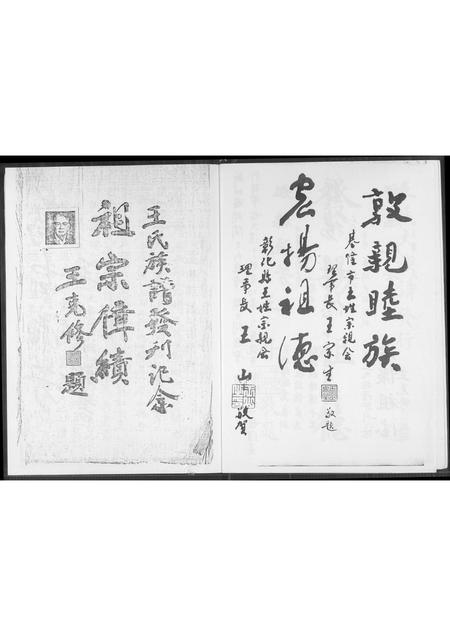 敦親睦族
基隆市王姓宗親會
理事長王宗生敬題
宏揚祖德
彰化縣王姓宗親會
理事長王山敬賀
王氏族譜發刊記念
祖宗偉績
王克修題